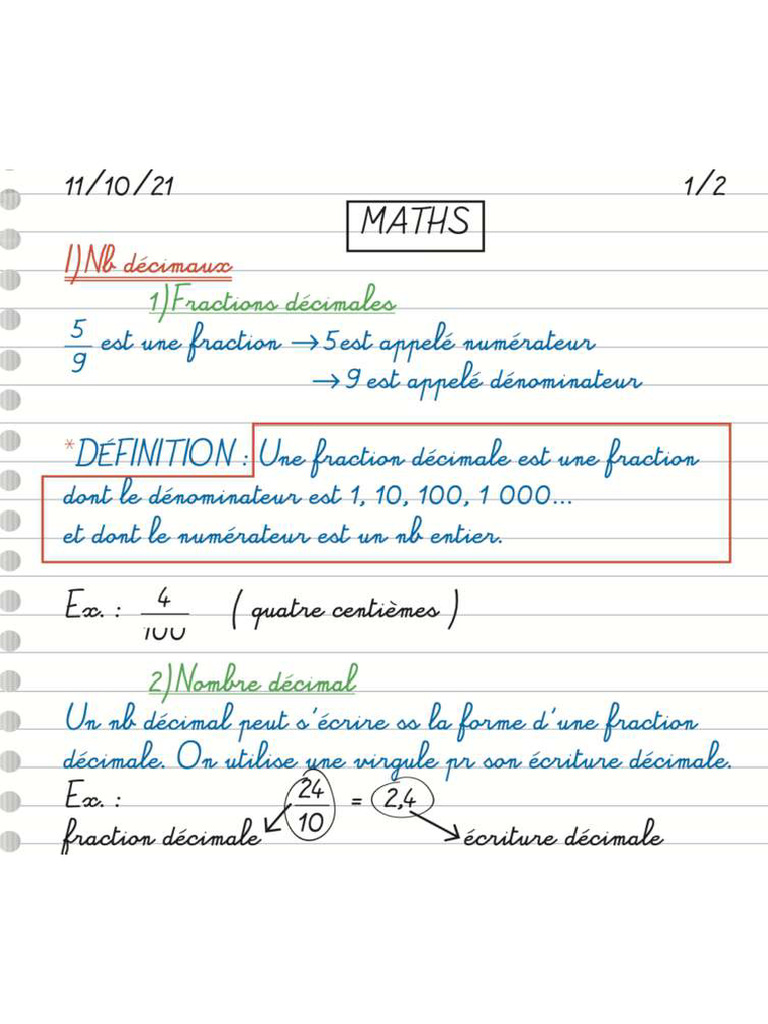 11/10/21 1/2
MATHS
I) Nb décimaux
1) Fractions décimales
5/9 est une fraction → 5 est appelé numérateur
→ 9 est appelé dénominateur
*DÉFINITION : Une fraction décimale est une fraction
dont le dénominateur est 1, 10, 100, 1 000...
et dont le numérateur est un nb entier.
Ex. : 4/100 ( quatre centièmes )
2) Nombre décimal
Un nb décimal peut s'écrire ss la forme d'une fraction
décimale. On utilise une virgule pr son écriture décimale.
Ex. : 24/10 = 2,4
fraction décimale écriture décimale